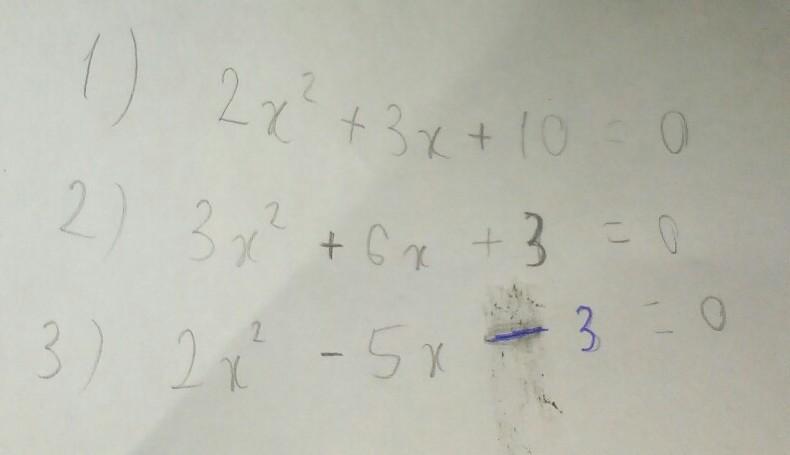 1) 2x² + 3x + 10 = 0
2) 3x² + 6x + 3 = 0
3) 2x² - 5x - 3 = 0